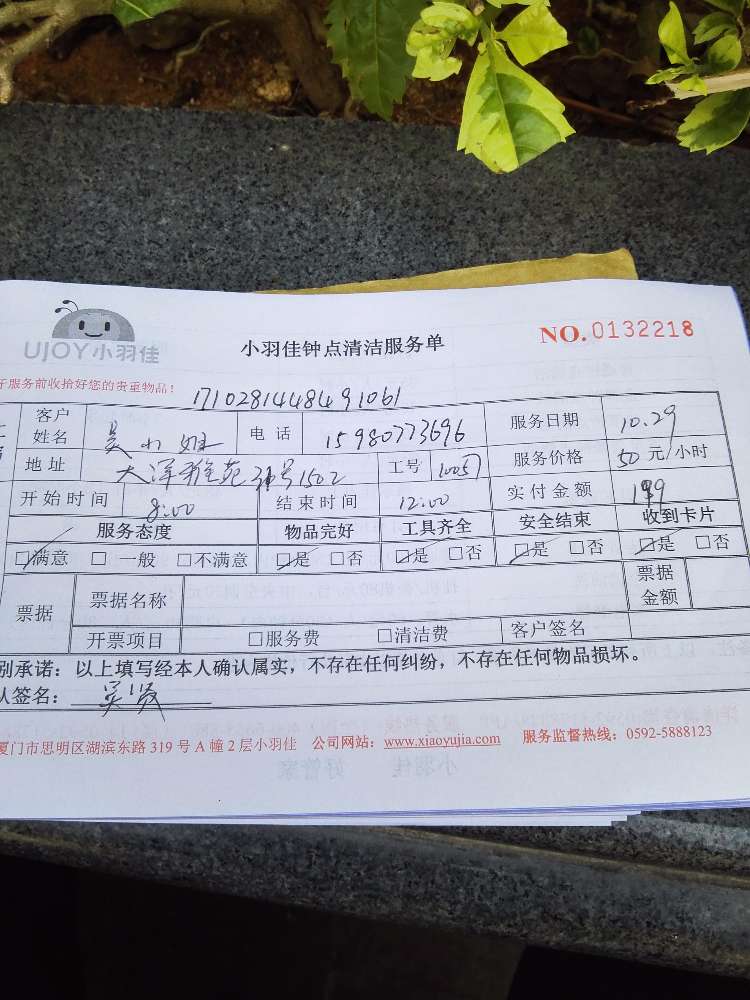 UJOY小羽佳
小羽佳钟点清洁服务单
NO.0132218
于服务前收拾好您的贵重物品!
1710281448491061
客户姓名 吴小姐 电话 15980773696 服务日期 10.29
地址 大洋雅苑 号1502 工号 服务价格 50元/小时
开始时间 8:00 结束时间 12:00 实付金额 199
服务态度 物品完好 工具齐全 安全结束 收到卡片
□满意 □一般 □不满意 □是 □否 □是 □否 □是 □否 □是 □否
票据 票据名称 票据金额
开票项目 □服务费 □清洁费 客户签名
别承诺:以上填写经本人确认属实,不存在任何纠纷,不存在任何物品损坏。
人签名:
厦门市思明区湖滨东路319号A幢2层小羽佳 公司网站:www.xiaoyujia.com 服务监督热线:0592-5888123